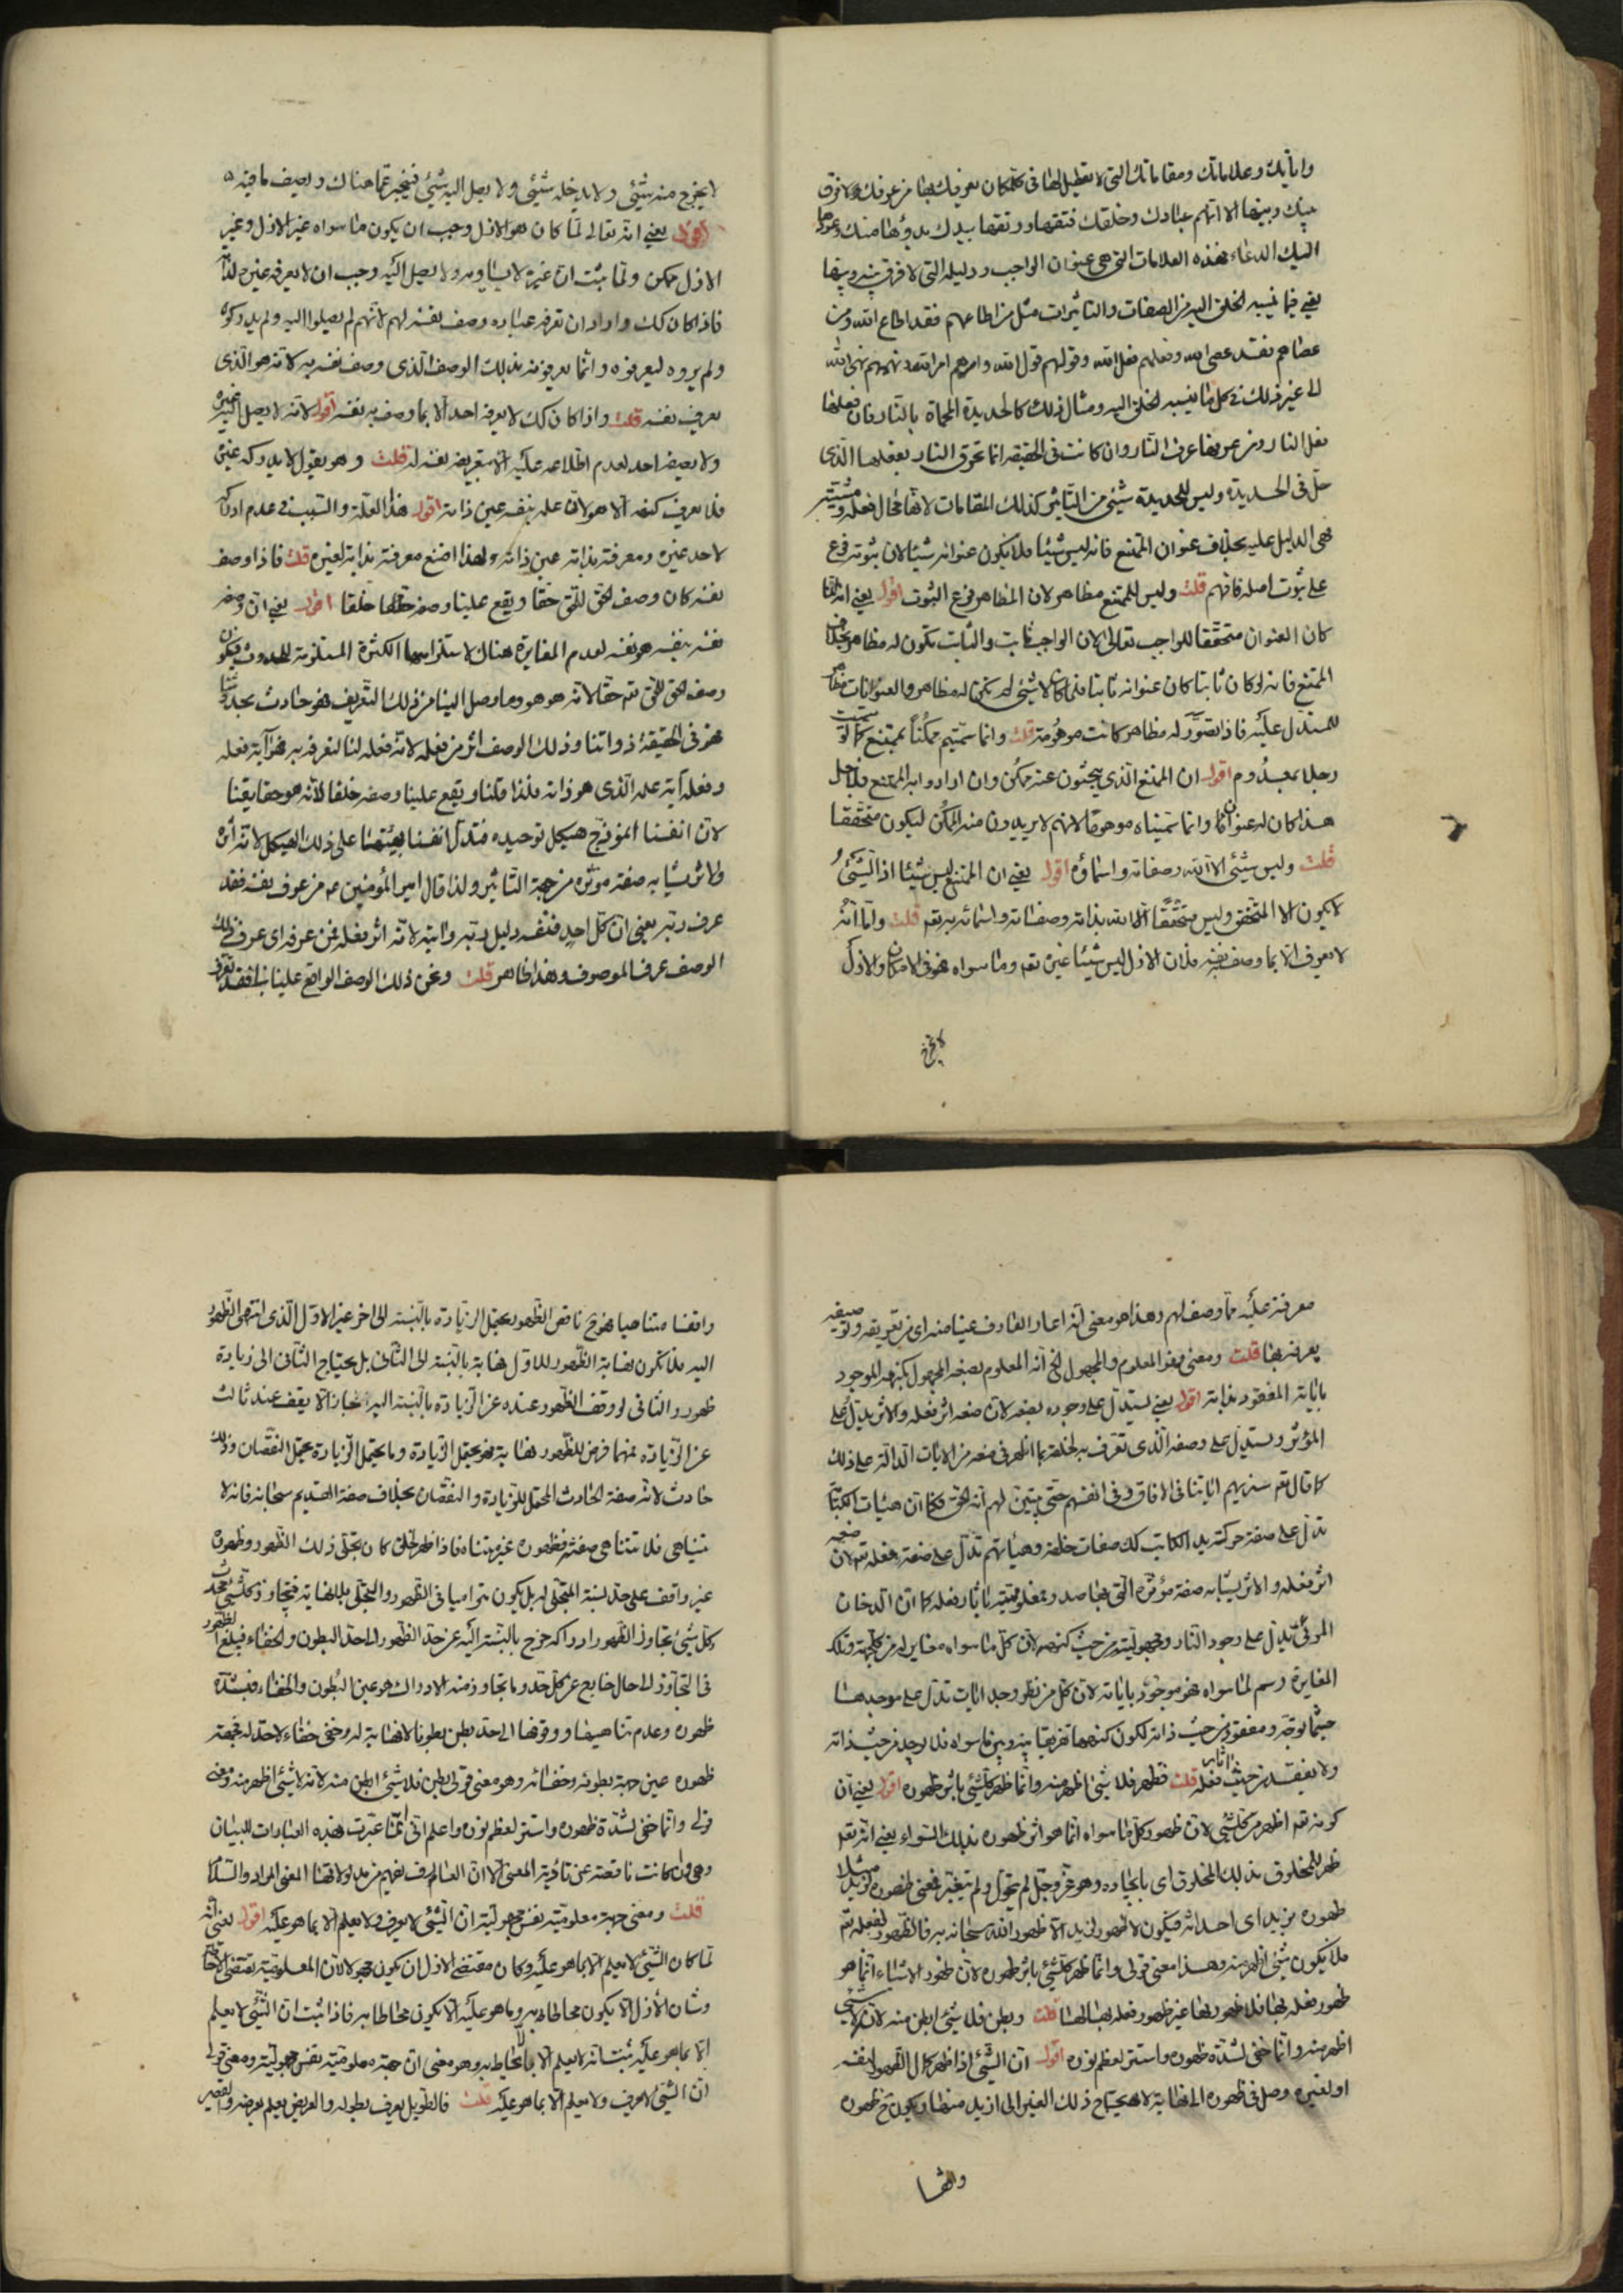 وآياتك وعلاماتك ومقاماتك التى لا تعطيل لها فى كل مكان يعرفك بها من عرفك لا فرق
بينك وبينها الا انهم عبادك وخلقك فتقها ورتقها بيدك بدؤها منك وعودها
اليك الدعاء فهذه العلامات التى هى عنوان الواجب ودليله التى لا فرق بينه وبينها
يعنى فيما ينسبه الخلق اليه من الصفات والتاثيرات مثل من اطاعهم فقد اطاع الله ومن
عصاهم فقد عصى الله وفعلهم فعل الله وقولهم قول الله وامرهم امر الله ونهيهم نهى الله
الى غير ذلك فى كل ما ينسبه الخلق اليه ومثال ذلك كالحديدة المحماة بالنار فان فعلها
فعل النار ومن عرفها عرف النار وان كانت فى الحقيقة انما تحرق النار بفعلها الذى
حل فى الحديدة وليس للحديدة شىء من التاثير كذلك المقامات لانها محال فعله ومشيته
فهى الدليل عليه بخلاف عنوان الممتنع فانه ليس شيئا فلا يكون عنوانه شيئا لان ثبوته فرع
على ثبوت اصله فافهم قلت وليس للممتنع مظاهر لان المظاهر فرع الثبوت اقول يعنى انه لما
كان العنوان متحققا للواجب تعالى لان الواجب ثابت والثابت تكون له مظاهر بخلاف
الممتنع فانه لو كان ثابتا كان عنوانه ثابتا فلما كان لا شىء لم تكن له مظاهر والعنوانات مظاهر
للمستدل عليه فاذا تصور له مظاهر كانت موهومة قلت وانما سميتم ممكنا بممتنع كما لو سميت
رجلا بمعدوم اقول ان الممتنع الذى يبحثون عنه ممكن وان ارادوا به الممتنع فلاجل
هذا كان له عنوان وانما سميناه موهوما لانهم لا يريدون منه الممكن ليكون متحققا
قلت وليس شىء الا الله وصفاته واسماؤه اقول يعنى ان الممتنع ليس شيئا اذ الشىء
لا يكون الا المتحقق وليس متحققا الا الله بذاته وصفاته واسمائه به تعم قلت واما انه
لا يعرف الا بما وصف به نفسه فلان الازل ليس شيئا غيره تعم وما سواه فهو فى الامكان والازل
لا يخرج
لا يخرج منه شىء ولا يدخله شىء ولا يصل اليه شىء فيخبر عما هناك ويصف ما فيه
اقول يعنى انه تعالى لما كان هو الازل وجب ان يكون ما سواه غير الازل وغير
الازل ممكن ولما ثبت ان غيره لا يساويه ولا يصل اليه وجب ان لا يعرفه غيره لذاته
فاذا كان كك واراد ان تعرفه عباده وصف نفسه لهم لانهم لم يصلوا اليه ولم يدركوه
ولم يروه ليعرفوه وانما يعرفونه بذلك الوصف الذى وصف نفسه به لانه هو الذى
يعرف نفسه قلت واذا كان كك لا يعرفه احد الا بما وصف به نفسه اقول لانه لا يصل اليه غيره
ولا يصفه احد لعدم اطلاعه عليه الا بتعريفه نفسه له قلت وهو يقول لا يدركه غيره
فلا يعرف كنهه الا هو لان علمه بنفسه عين ذاته اقول هذا العلة والسبب فى عدم ادراكه
لاحد غيره ومعرفته بذاته عين ذاته ولهذا امتنع معرفة بذاته لغيره قلت فاذا وصف
نفسه كان وصف الحق للحق حقا ويقع علينا وصفه خلقا اقول يعنى ان وصفه
نفسه بنفسه هو نفسه لعدم المغايرة هناك لاستلزامها الكثرة المستلزمة للحدوث فيكون
وصف الحق للحق تعم حقا لانه هو هو وما وصل الينا من ذلك التعريف فهو حادث بحدوثنا
فهو فى الحقيقة ذواتنا وذلك الوصف اثر من فعله لانه فعله لنا لنعرفه به فهو آية فعله
وفعله آية علمه الذى هو ذاته فلذا قلنا ويقع علينا وصفه خلقا لانه هو حقايقنا
لان انفسنا انموذج هيكل توحيده فتدل انفسنا بهيئتها على ذلك الهيكل لانه اثره
والاثر يشابه صفة مؤثره من جهة التاثير ولذا قال امير المؤمنين عم من عرف نفسه فقد
عرف ربه يعنى ان كل احد فنفسه دليل ربه وآيته لانه اثر فعله فمن عرفه اى عرف ذلك
الوصف عرف الموصوف وهذا ظاهر قلت ونحن ذلك الوصف الواقع علينا
معرفته عليه مما وصف لهم وهذا هو معنى انه اعار العارف عينا منه اى من تعريفه وتوصيفه
يعرفه بها قلت ومعنى فهو المعلوم والمجهول الخ انه المعلوم بصنعه المجهول بكنهه الموجود
باياته المفقود بذاته اقول يعنى يستدل على وجوده بصنعه لان صنعه اثر فعله والاثر يدل على
المؤثر ويستدل على وصفه الذى تعرف به لخلقه بما اظهر فى صنعه من الايات الدالة على ذلك
كما قال تعم سنريهم اياتنا فى الافاق وفى انفسهم حتى يتبين لهم انه الحق فكما ان هيئات الكتابة
تدل على صفة حركة يد الكاتب كك صفات خلقه وهيئاتهم تدل على صفة فعله تعم لان صنعه
اثر فعله والاثر يشابه صفة مؤثره التى بها صدر فمعلوميته باثار فعله كما ان الدخان
المرئى يدل على وجود النار ومجهوليته من حيث كنهه لان كل ما سواه مغاير له من كل جهة وتلك
المغايرة رسم لما سواه فهو موجود باياته لان كل من نظر وجد ايات تدل على موجدها
حيثما توجه ومفقود من حيث ذاته لكون كنهها تفريقا بينه وبين ما سواه فلا يوجد من حيث ذاته
ولا يفقد من حيث اثار فعله قلت فظهر فلا شىء اظهر منه وانما ظهر كل شىء باثر ظهوره اقول يعنى ان
كونه تعم اظهر من كل شىء لان ظهور كل ما سواه انما هو اثر ظهوره بذلك السواء يعنى انه تعم
ظهر للمخلوق بذلك المخلوق اى بايجاده وهو عز وجل لم يتحول ولم يتغير فمعنى ظهوره لزيد مثلا
ظهوره بزيد اى احداثه فيكون لا ظهور لزيد الا ظهور الله سبحانه به فالظهور لفعله تعم
فلا يكون شىء اظهر منه وهذا معنى قولى وانما ظهر كل شىء باثر ظهوره لان ظهور الاشياء انما هو
ظهور فعله بها فلا ظهور لها غير ظهور فعله بها لها قلت وبطن فلا شىء ابطن منه لانه لا شىء
اظهر منه وانما خفى لشدة ظهوره واستتر لعظم نوره اقول ان الشىء اذا ظهر كمال الظهور لنفسه
او لغيره وصل فى ظهوره الى نهاية لا يحتاج ذلك الغير الى ازيد منها ويكون ح ظهوره
واقفا
واقفا متناهيا فهو ح ناقص الظهور يحتمل الزيادة بالنسبة الى اخر غير الاول الذى انتهى الظهور
اليه فلا تكون نهاية الظهور للاول نهاية بالنسبة الى الثانى بل يحتاج الثانى الى زيادة
ظهور والثانى لو وقف الظهور عنده عن الزيادة بالنسبة اليه جاز الا يقف عند ثالث
عن الزيادة فمهما فرض للظهور نهاية فهو يحتمل الزيادة وما يحتمل الزيادة يحتمل النقصان وذلك
حادث لانه صفة الحادث المحتمل للزيادة والنقصان بخلاف صفة القديم سبحانه فانه لا
يتناهى فلا تتناهى صفته فظهوره غير متناه فاذا ظهر لخلق كان تجلى ذلك الظهور وظهوره
غير واقف على حد لنسبة المتجلى له بل يكون متراميا فى الظهور والتجلى بلا نهاية فيتجاوز كل شىء بحده
وكل شىء تجاوز الظهور ادراكه خرج بالنسبة اليه عن حد الظهور الى حد البطون والخفاء فيبلغ الظهور
فى التجاوز الى حال خارج عن كل حد وما تجاوز منه الادراك هو عين البطون والخفاء فشدة
ظهوره وعدم تناهيها ووقوفها الى حد بطن بطونا لا نهاية له وخفى خفاء لا حد له فجهة
ظهوره عين جهة بطونه وخفائه وهو معنى قولى بطن فلا شىء ابطن منه لانه لا شىء اظهر منه ومعنى
قولى وانما خفى لشدة ظهوره واستتر لعظم نوره واعلم انى انما عبرت بهذه العبارات للبيان
وهى وان كانت ناقصة عن تادية المعنى الا ان العارف يفهم من مدلولاتها المعنى المراد والسلام
قلت ومعنى جهة معلوميته نفس مجهوليته ان الشىء لا يعرف ولا يعلم الا بما هو عليه اقول يعنى انه
لما كان الشىء لا يعلم الا بما هو عليه وكان مقتضى الازل ان يكون مجهولا لان المعلومية تقتضى الاحاطة
وشان الازل الا يكون محاطا به وما هو عليه الا يكون محاطا به فاذا ثبت ان الشىء لا يعلم
الا بما هو عليه ثبت انه لا يعلم الا بانه لا يحاط به وهو معنى ان جهة معلوميته نفس مجهوليته ومعنى قولى
ان الشىء لا يعرف ولا يعلم الا بما هو عليه قلت فالطويل يعرف بطوله والعريض يعلم بعرضه والقصير